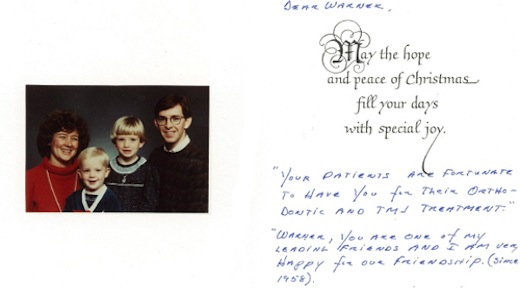 DEAR WARNER,
May the hope
and peace of Christmas
fill your days
with special joy.
"YOUR PATIENTS ARE FORTUNATE
TO HAVE YOU for Their ORTHO-
DONTIC AND TMJ TREATMENT."
"WARNER, YOU ARE ONE OF MY
LEADING FRIENDS AND I AM VERY
HAPPY for our FRIENDSHIP. (Since
1958).